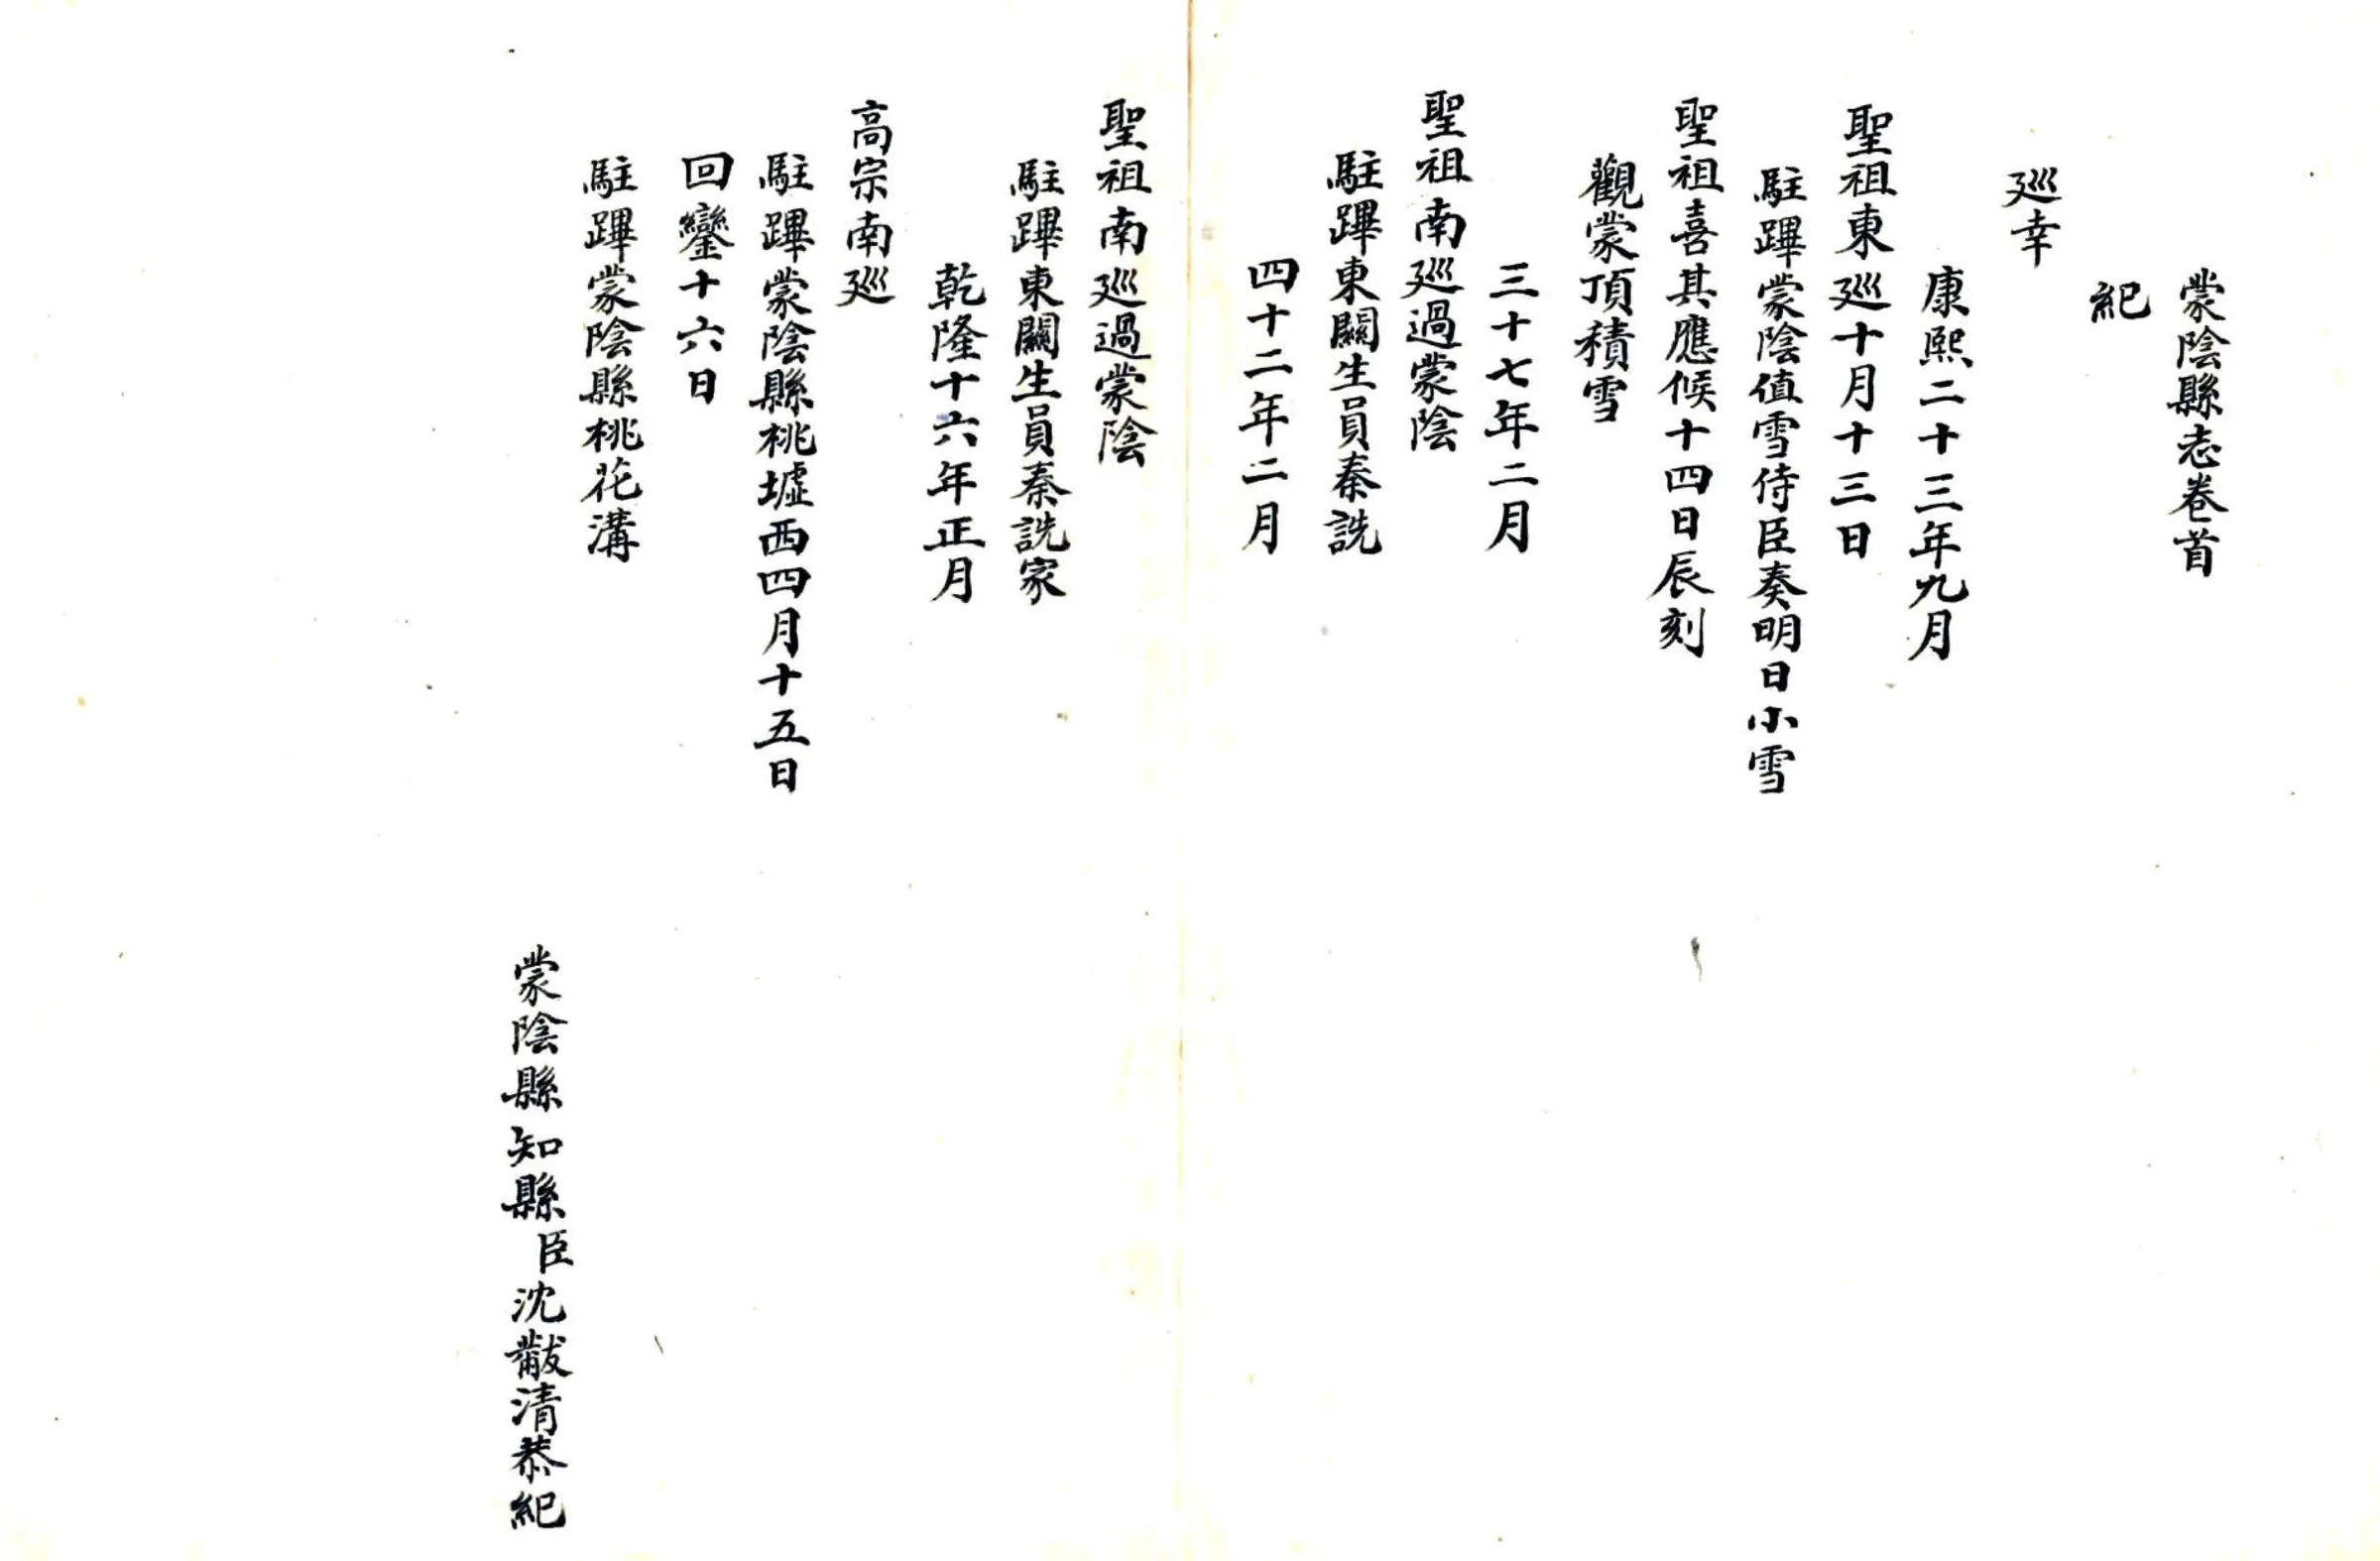 蒙陰縣志卷首
紀
廵幸
康熙二十三年九月
聖祖東廵十月十三日
駐蹕蒙陰值雪侍臣奏明日小雪
聖祖喜其應候十四日辰刻
觀蒙頂積雪
三十七年二月
聖祖南廵過蒙陰
駐蹕東關生員秦詵
四十二年二月
聖祖南廵過蒙陰
駐蹕東關生員秦詵家
乾隆十六年正月
高宗南廵
駐蹕蒙陰縣桃墟西四月十五日
回鑾十六日
駐蹕蒙陰縣桃花溝
蒙陰縣知縣臣沈黻清恭紀